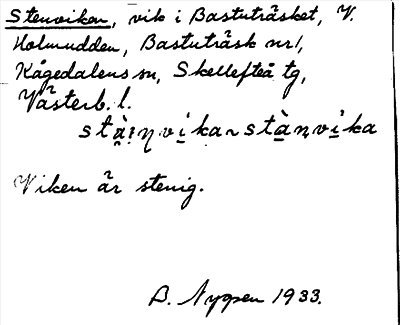 Stenviken, vik i Bastuträsket, V.
Holmudden, Bastuträsk nr 1,
Kågedalens sn, Skellefteå tg,
Västerb. l.
Viken är stenig.
B. 1933.